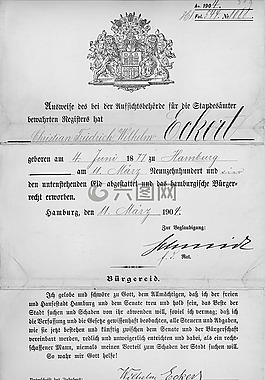 An. 190
Fol. 544. № 1111
Ausweise des bei der Aufsichtsbehörde für die Standesämter
bewahrten Registers hat
Christian Friedrich Wilhelm Eckert
geboren am 4. Juni 1877 zu Hamburg
am 11. März Neunzehnhundert und vier
den untenstehenden Eid abgestattet und das hamburgische Bürger-
recht erworben.
Hamburg, den 11. März 1904.
Zur Beglaubigung:
Rat.
Bürgereid.
Ich gelobe und schwöre zu Gott, dem Allmächtigen, daß ich der freien
und Hansestadt Hamburg und dem Senate treu und hold sein, das Beste der
Stadt suchen und Schaden von ihr abwenden will, soweit ich vermag; daß ich
die Verfassung und die Gesetze gewissenhaft beobachten, alle Steuern und Abgaben,
wie sie jetzt bestehen und künftig zwischen dem Senate und der Bürgerschaft
vereinbart werden, redlich und unweigerlich entrichten und dabei, als ein recht-
schaffener Mann, niemals meinen Vorteil zum Schaden der Stadt suchen will.
So wahr mir Gott helfe!
Wilhelm Eckert